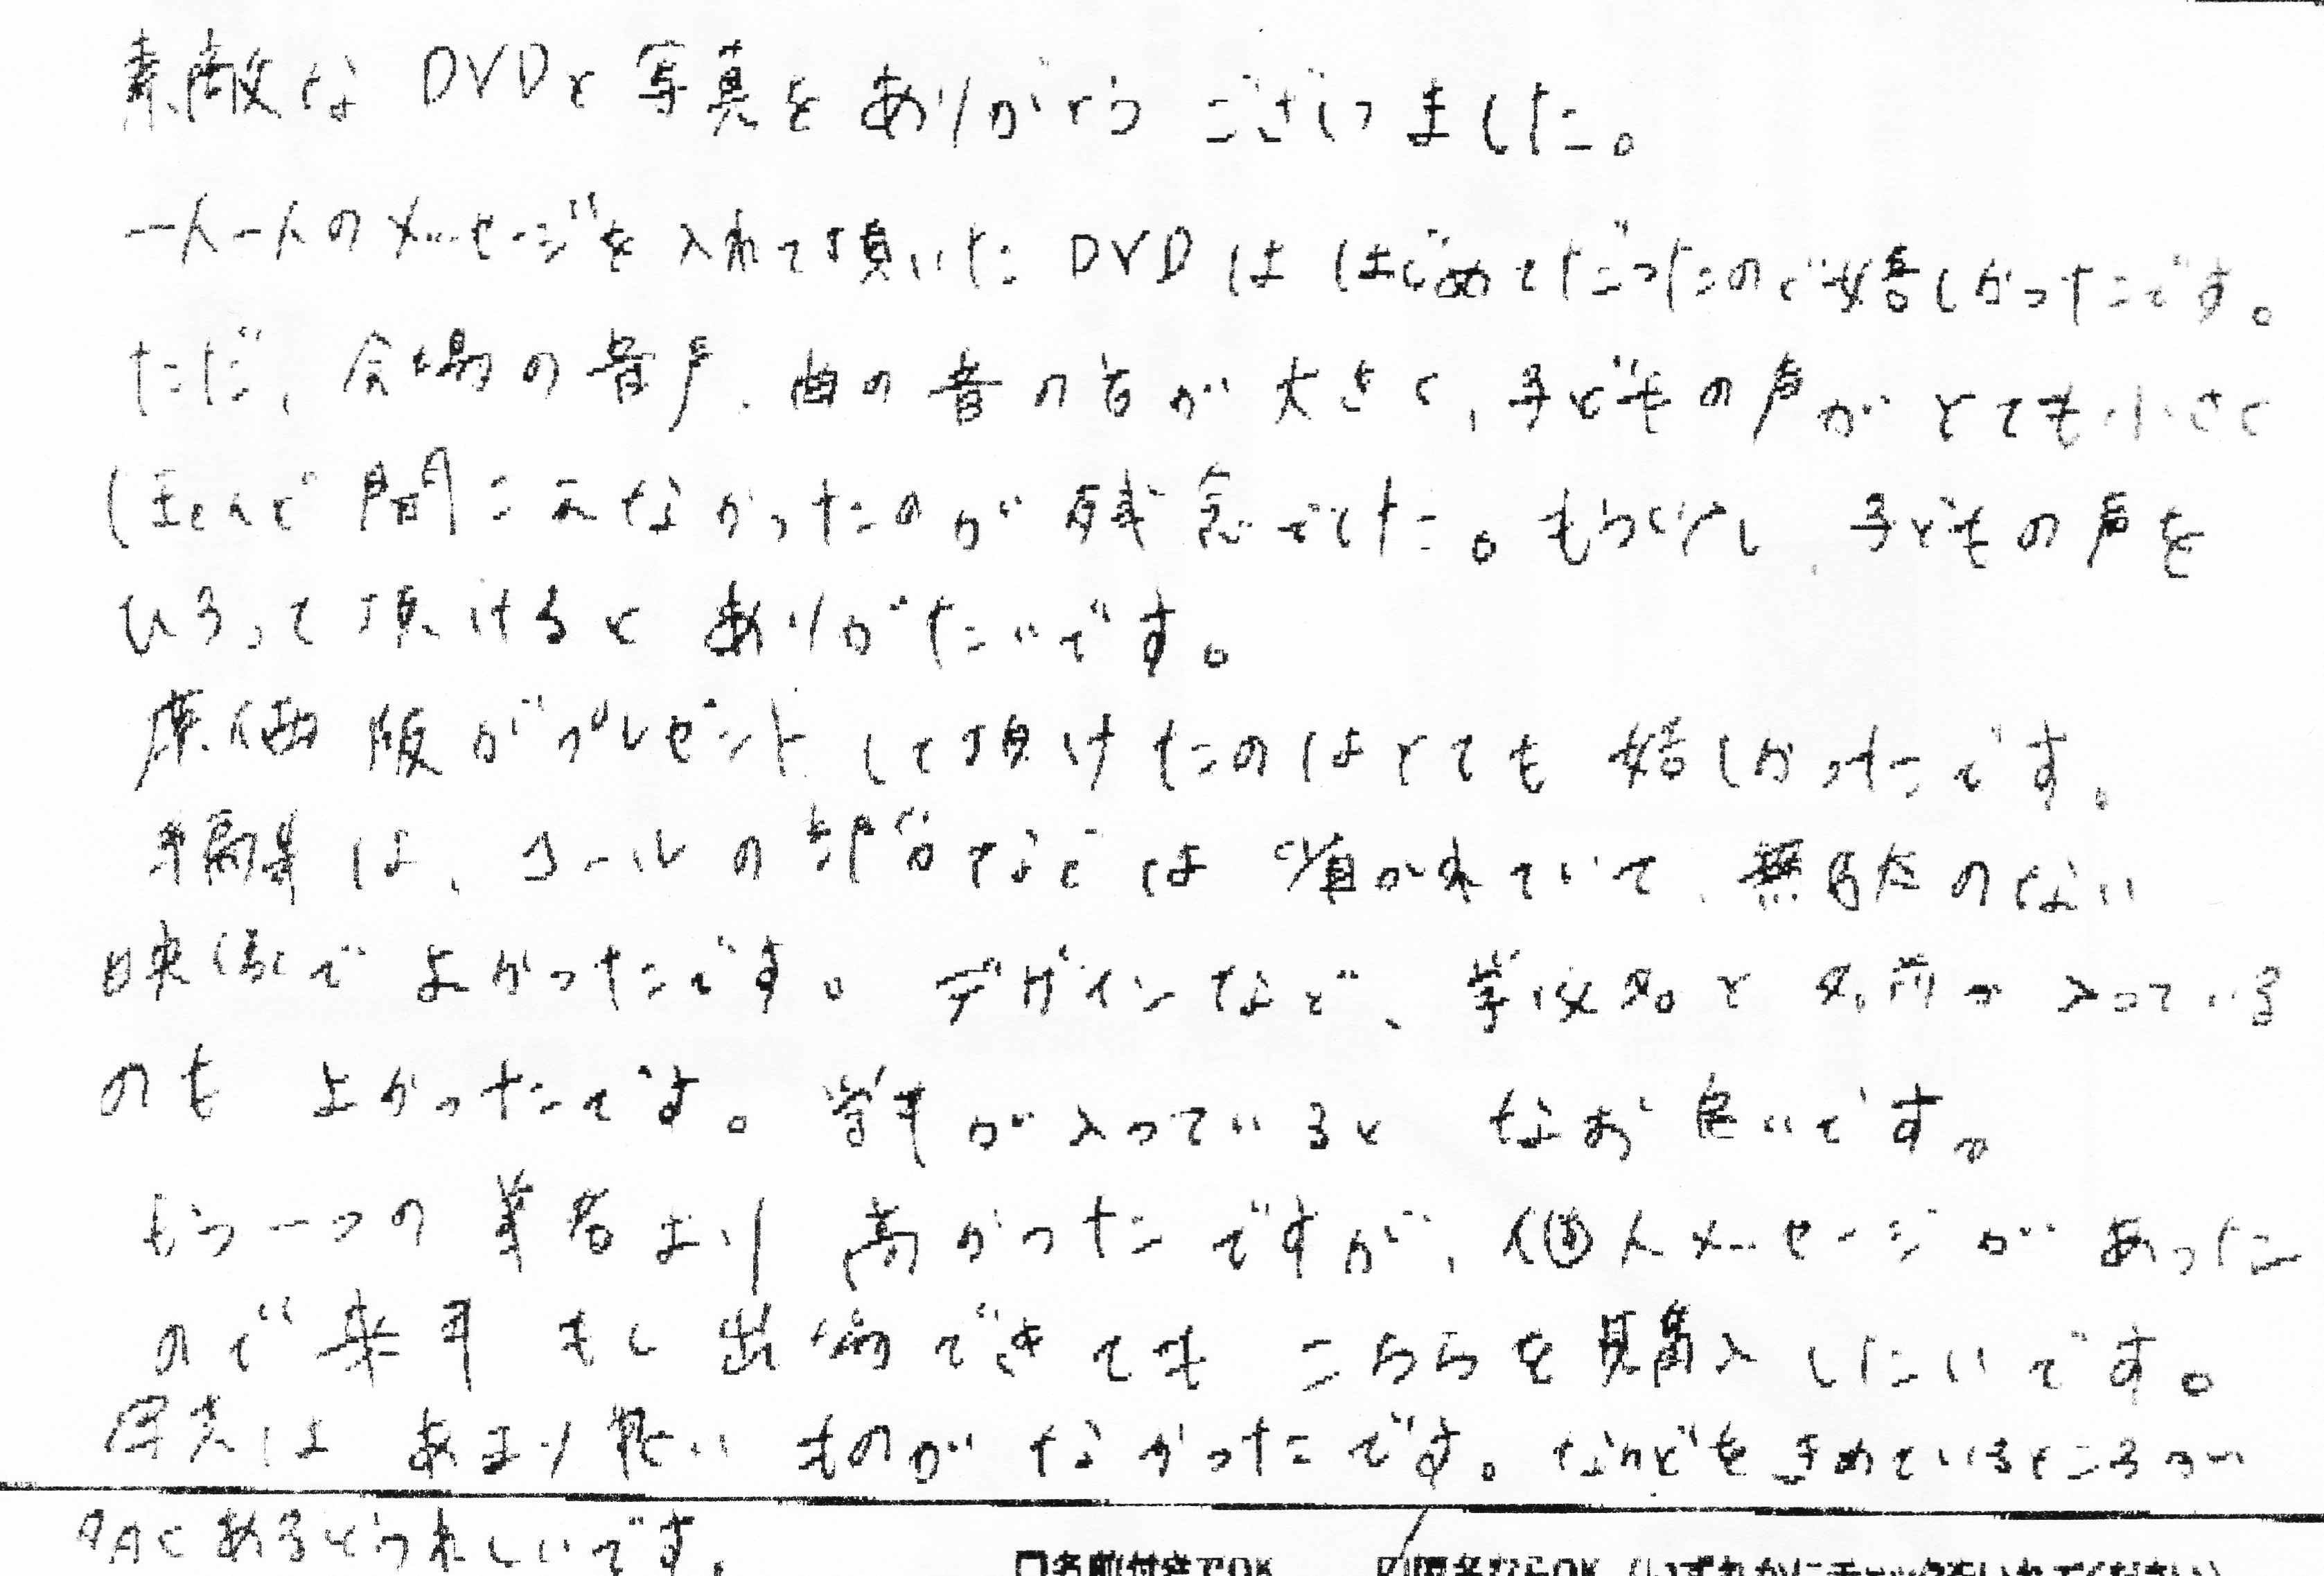 素敵な DVDと写真を ありがとう ございました。
一人一人のメッセージを入れて頂いた DVD は はじめてだったので嬉しかったです。
ただ、会場の音声、曲の音の方が 大きく、子どもの声が とても小さく
ほとんど 聞こえなかったのが 残念でした。もう少し、子どもの声を
ひろって頂けると ありがたいです。
原動版が プレゼント して頂けたのはとても 嬉しかったです。
編集は、コールの部分などは 省かれていて、無駄のない
映像で よかったです。デザインなど、学校名と名前が入っている
のも よかったです。学年が入っていると なお良いです。
もう一つの業者より 高かったですが、個人メッセージが あった
ので 来年 もし 出場できても こちらを購入したいです。
写真は あまり良い ものが なかったです。などを きめているところが
あるとうれしいです。
□名前付きでOK ☑匿名ならOK (いずれかにチェックをいれてください)